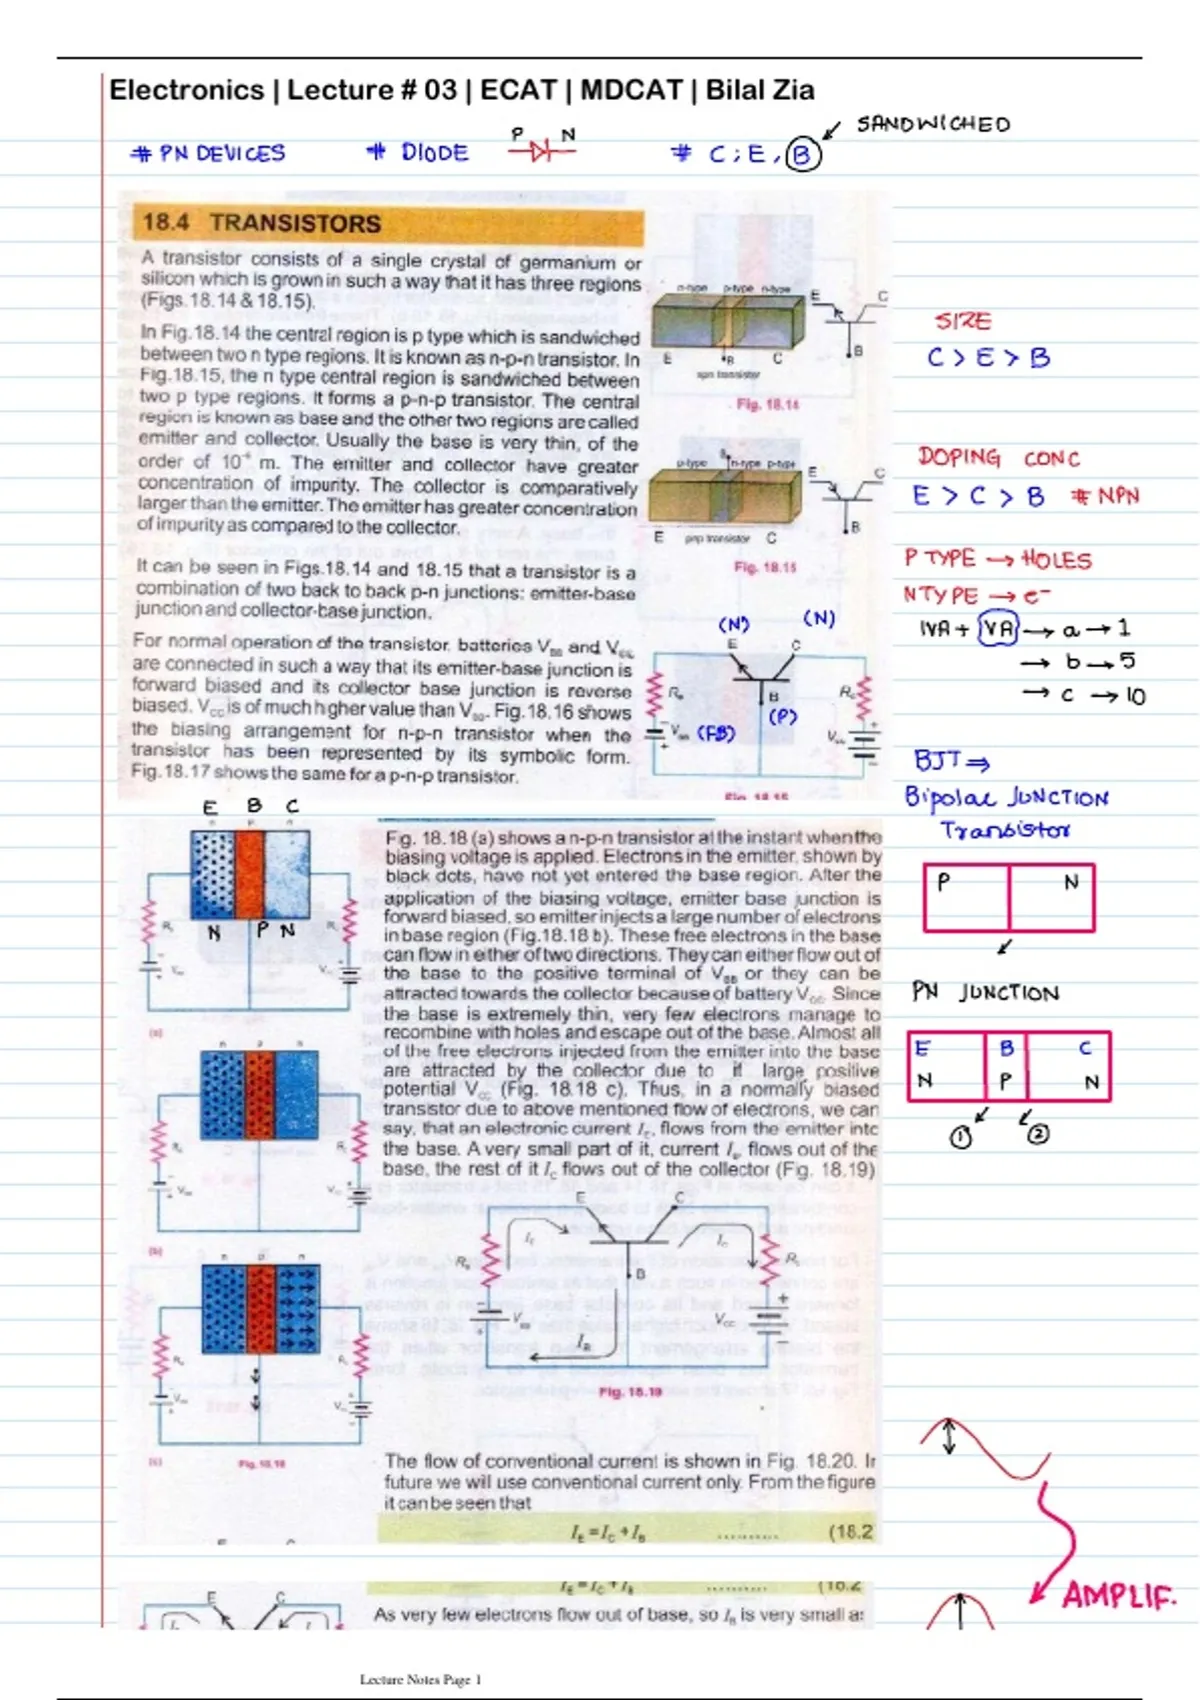 Electronics | Lecture # 03 | ECAT | MDCAT | Bilal Zia
# PN DEVICES
# DIODE
P N
# C ; E , B
SANDWICHED
18.4 TRANSISTORS
A transistor consists of a single crystal of germanium or
silicon which is grown in such a way that it has three regions
(Figs.18.14 & 18.15).
In Fig.18.14 the central region is p type which is sandwiched
between two n type regions. It is known as n-p-n transistor. In
Fig.18.15, the n type central region is sandwiched between
two p type regions. It forms a p-n-p transistor. The central
region is known as base and the other two regions are called
emitter and collector. Usually the base is very thin, of the
order of 10⁻⁶ m. The emitter and collector have greater
concentration of impurity. The collector is comparatively
larger than the emitter. The emitter has greater concentration
of impurity as compared to the collector.
It can be seen in Figs.18.14 and 18.15 that a transistor is a
combination of two back to back p-n junctions: emitter-base
junction and collector-base junction.
For normal operation of the transistor, batteries VBB and VCC
are connected in such a way that its emitter-base junction is
forward biased and its collector base junction is reverse
biased. VCC is of much higher value than VBB. Fig.18.16 shows
the biasing arrangement for n-p-n transistor when the
transistor has been represented by its symbolic form.
Fig.18.17 shows the same for a p-n-p transistor.
n-type p-type n-type
E C
B
E B C
npn transistor
Fig. 18.14
p-type n-type p-type
B
E C
B
E pnp transistor C
Fig. 18.15
(N) (N)
E C
RB B RC
(P)
VBB (FB) VCC
Fig. 18.16
SIZE
C > E > B
DOPING CONC
E > C > B # NPN
P TYPE → HOLES
N TYPE → e⁻
IVA + VA → a → 1
→ b → 5
→ c → 10
BJT ⇒
Bipolar JUNCTION
Transistor
P N
PN JUNCTION
E B C
N P N
① ②
E B C
n p n
N P N
(a)
n p n
(b)
n p n
(c)
Fig. 18.18
Fig. 18.18 (a) shows a n-p-n transistor at the instant when the
biasing voltage is applied. Electrons in the emitter, shown by
black dots, have not yet entered the base region. After the
application of the biasing voltage, emitter base junction is
forward biased, so emitter injects a large number of electrons
in base region (Fig.18.18 b). These free electrons in the base
can flow in either of two directions. They can either flow out of
the base to the positive terminal of VBB or they can be
attracted towards the collector because of battery VCC. Since
the base is extremely thin, very few electrons manage to
recombine with holes and escape out of the base. Almost all
of the free electrons injected from the emitter into the base
are attracted by the collector due to it large positive
potential VCC (Fig. 18.18 c). Thus, in a normally biased
transistor due to above mentioned flow of electrons, we can
say, that an electronic current IE, flows from the emitter into
the base. A very small part of it, current IB flows out of the
base, the rest of it IC flows out of the collector (Fig. 18.19)
E C
IE IC
RB RC
B
VBB VCC
IB
Fig. 18.19
The flow of conventional current is shown in Fig. 18.20. In
future we will use conventional current only. From the figure
it can be seen that
IE = IC + IB .......... (18.2
IE = IC + IB .......... (18.2
E C
As very few electrons flow out of base, so IB is very small as
AMPLIF.
Lecture Notes Page 1